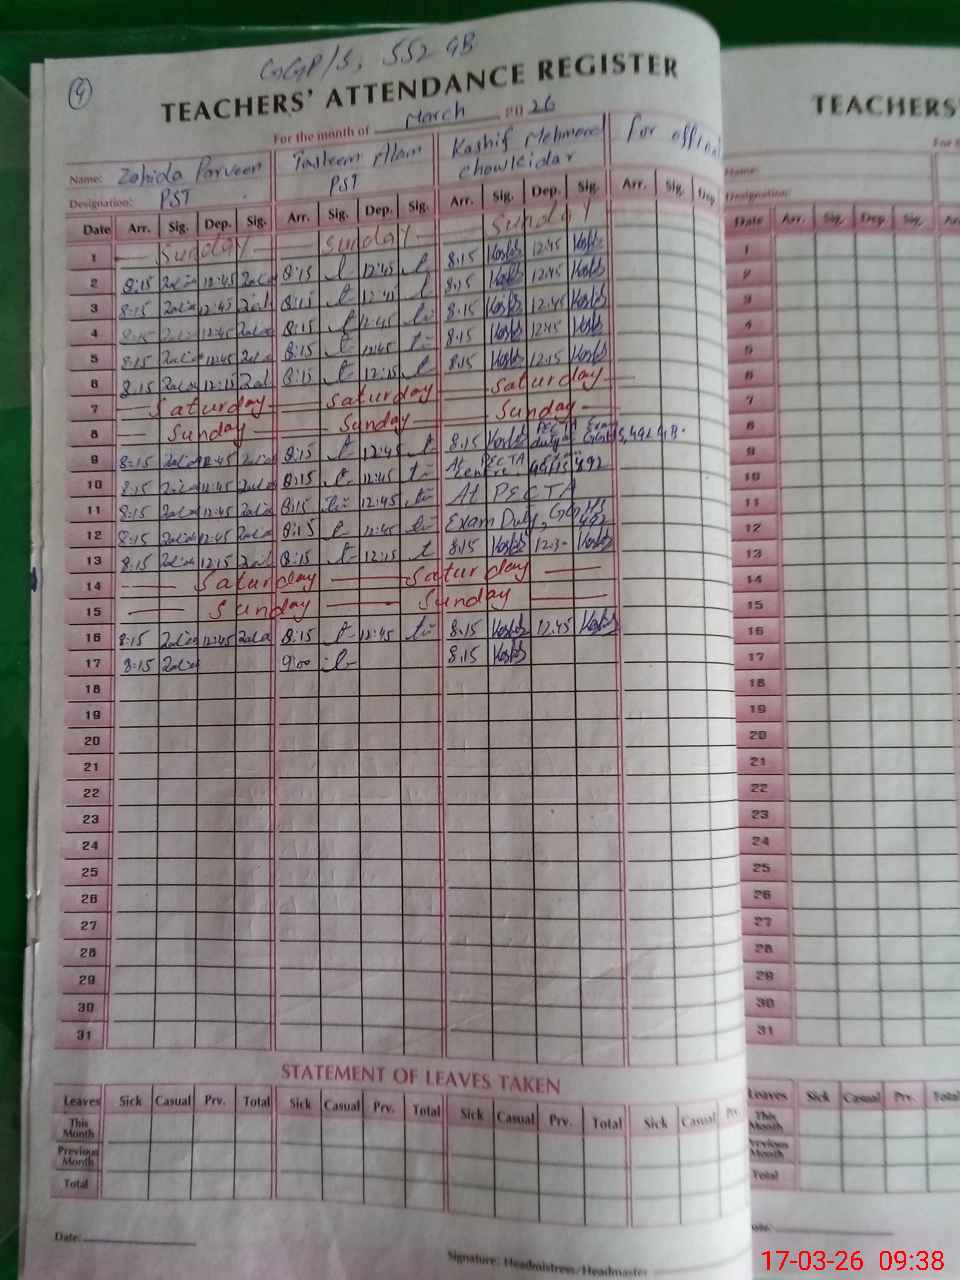 4
GGP/S, 552 GB
TEACHERS' ATTENDANCE REGISTER
For the month of March 2026
Name: Zahida Parveen Tasleem Alam Kashif Mehmood for official
Designation: PST PST Chowkidar
Date Arr. Sig. Dep. Sig. Arr. Sig. Dep. Sig. Arr. Sig. Dep. Sig. Arr. Sig. Dep.
1 Sunday Sunday Sunday
2 8:15 12:45 8:15 12:45 8.15 12.45
3 8:15 12:45 8:15 12:45 8.15 12.45
4 8:15 12:45 8:15 12:45 8.15 12.45
5 8:15 12:45 8:15 12:45 8.15 12.45
6 8:15 12:15 8:15 12:15 8.15 12.15
7 Saturday Saturday Saturday
8 Sunday Sunday Sunday
9 8:15 12:45 8:15 12:45 8.15 PECTA Exam duty 492 GB.
10 8:15 12:45 8:15 12:45 At PECTA Centre 492
11 8:15 12:45 8:15 12:45 At PECTA
12 8:15 12:45 8:15 12:45 Exam Duty, GGHS 492
13 8:15 12:15 8:15 12:15 8.15 12.30
14 Saturday Saturday
15 Sunday Sunday
16 8:15 12:45 8:15 12:45 8.15 12.45
17 8:15 9:00 8.15
18
19
20
21
22
23
24
25
26
27
28
29
30
31
STATEMENT OF LEAVES TAKEN
Leaves Sick Casual Prv. Total Sick Casual Prv. Total Sick Casual Prv. Total Sick Casual Prv.
This Month
Previous Month
Total
Date:
Signature: Headmistress/Headmaster
TEACHERS'
For
Name:
Designation:
Date Arr. Sig. Dep. Sig. Arr.
1
2
3
4
5
6
7
8
9
10
11
12
13
14
15
16
17
18
19
20
21
22
23
24
25
26
27
28
29
30
31
Leaves Sick Casual Prv. Total
This Month
Previous Month
Total
Date:
17-03-26 09:38